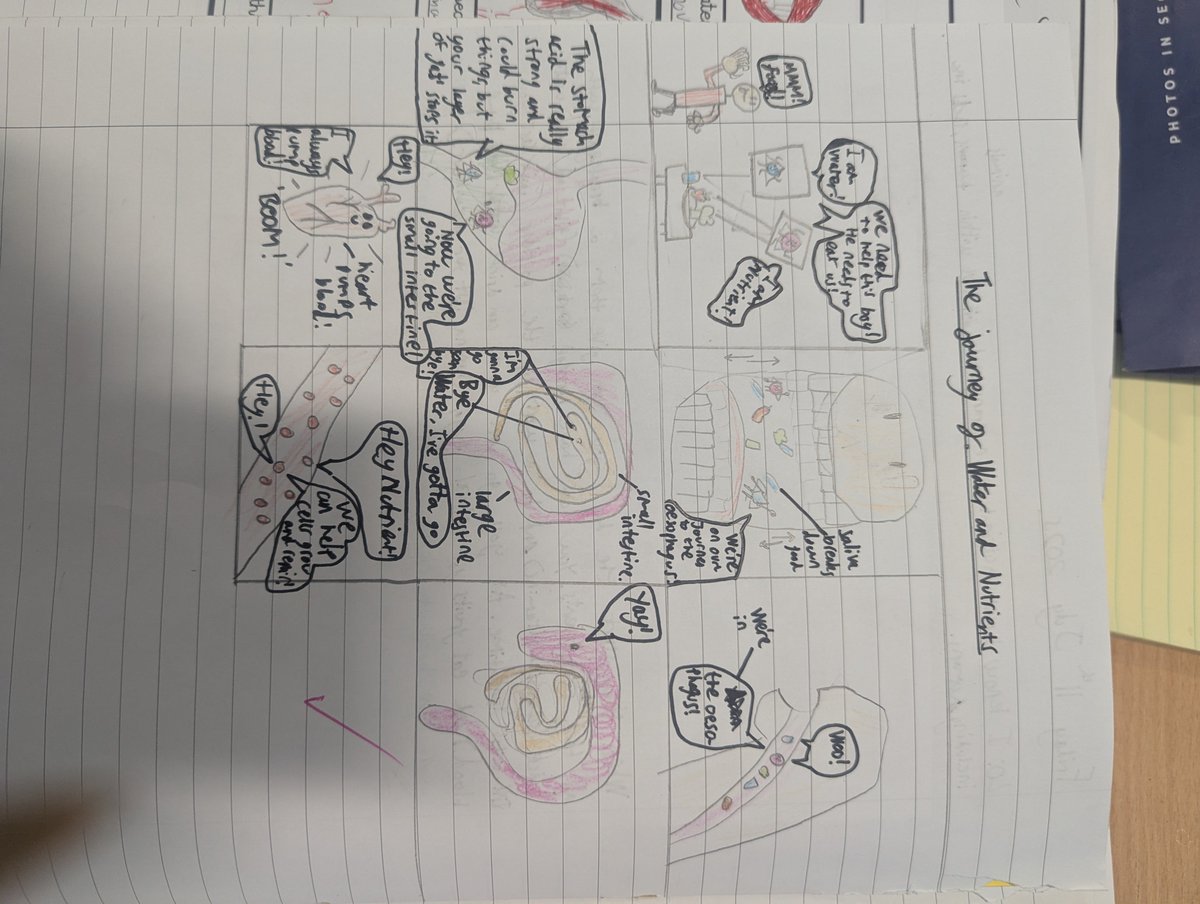 The journey of Water and Nutrients
MMM!
food!
I am
water!
We need
to help this boy!
He needs to
eat us!
saliva
breaks
down
food
We're
on our
journey
to the
oesophagus.
Woo!
We're
in
the oesa
phgus!
The stomach
acid is really
strong and
could burn
things, but
your layer
Now we're
going to the
small intertine!
I'm
gonna
go
bye!
Bye
Water, I've gotta go
small
intestine.
large
intestine
Yay!
Hey!
I
always
pump
blood!
'BOOM!'
heart
pumps
blood!
Hey Nutrient!
we
can help
cells grow
and repair!
Hey!
PHOTOS IN SE